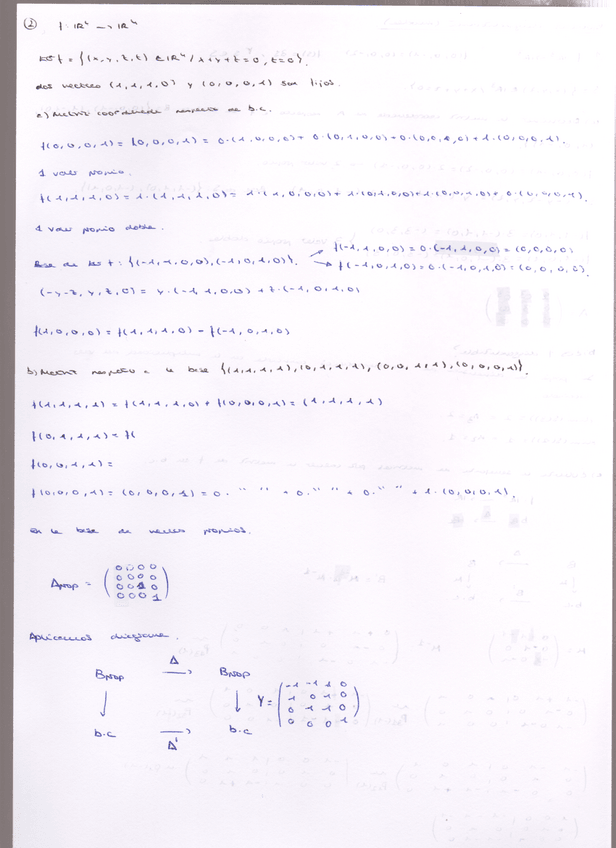 ② f: ℝ⁴ → ℝ⁴
Ker f = {(x,y,z,t) ∈ ℝ⁴ / x+y+z=0, t=0}.
dos vectores (1,1,1,0) y (0,0,0,1) son fijos.
a) Matriz coordenada respecto de b.c.
f(0,0,0,1) = (0,0,0,1) = 0·(1,0,0,0) + 0·(0,1,0,0) + 0·(0,0,1,0) + 1·(0,0,0,1).
1 valor propio.
f(1,1,1,0) = 1·(1,1,1,0) = 1·(1,0,0,0) + 1·(0,1,0,0) + 1·(0,0,1,0) + 0·(0,0,0,1).
1 valor propio doble.
Base de Ker f: {(-1,1,0,0), (-1,0,1,0)}. → f(-1,1,0,0) = 0·(-1,1,0,0) = (0,0,0,0)
→ f(-1,0,1,0) = 0·(-1,0,1,0) = (0,0,0,0).
(-y-z, y, z, 0) = y·(-1,1,0,0) + z·(-1,0,1,0)
f(1,0,0,0) = f(1,1,1,0) - f(-1,0,1,0)
b) Matriz respecto a la base {(1,1,1,1), (0,1,1,1), (0,0,1,1), (0,0,0,1)}.
f(1,1,1,1) = f(1,1,1,0) + f(0,0,0,1) = (1,1,1,1)
f(0,1,1,1) = f(
f(0,0,1,1) =
f(0,0,0,1) = (0,0,0,1) = 0· " " + 0· " " + 0· " " + 1·(0,0,0,1).
En la base de vectores propios.
A_prop = ( 0 0 0 0
0 0 0 0
0 0 1 0
0 0 0 1 )
Aplicamos diagrama.
B_prop A → B_prop
↓ ↓ Y = ( -1 -1 1 0
1 0 1 0
0 1 1 0
0 0 0 1 )
b.c A' → b.c